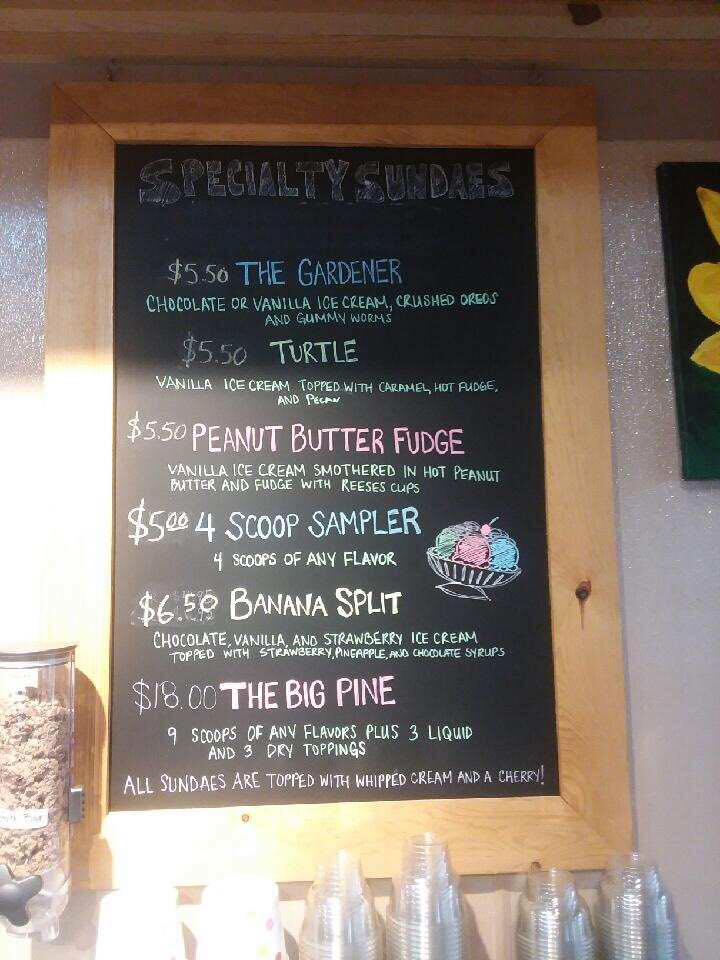 SPECIALTY SUNDAES
$5.50 THE GARDENER
CHOCOLATE OR VANILLA ICE CREAM, CRUSHED OREOS
AND GUMMY WORMS
$5.50 TURTLE
VANILLA ICE CREAM TOPPED WITH CARAMEL, HOT FUDGE,
AND PECAN
$5.50 PEANUT BUTTER FUDGE
VANILLA ICE CREAM SMOTHERED IN HOT PEANUT
BUTTER AND FUDGE WITH REESES CUPS
$5.00 4 SCOOP SAMPLER
4 SCOOPS OF ANY FLAVOR
$6.50 BANANA SPLIT
CHOCOLATE, VANILLA, AND STRAWBERRY ICE CREAM
TOPPED WITH STRAWBERRY, PINEAPPLE, AND CHOCOLATE SYRUPS
$18.00 THE BIG PINE
9 SCOOPS OF ANY FLAVORS PLUS 3 LIQUID
AND 3 DRY TOPPINGS
ALL SUNDAES ARE TOPPED WITH WHIPPED CREAM AND A CHERRY!